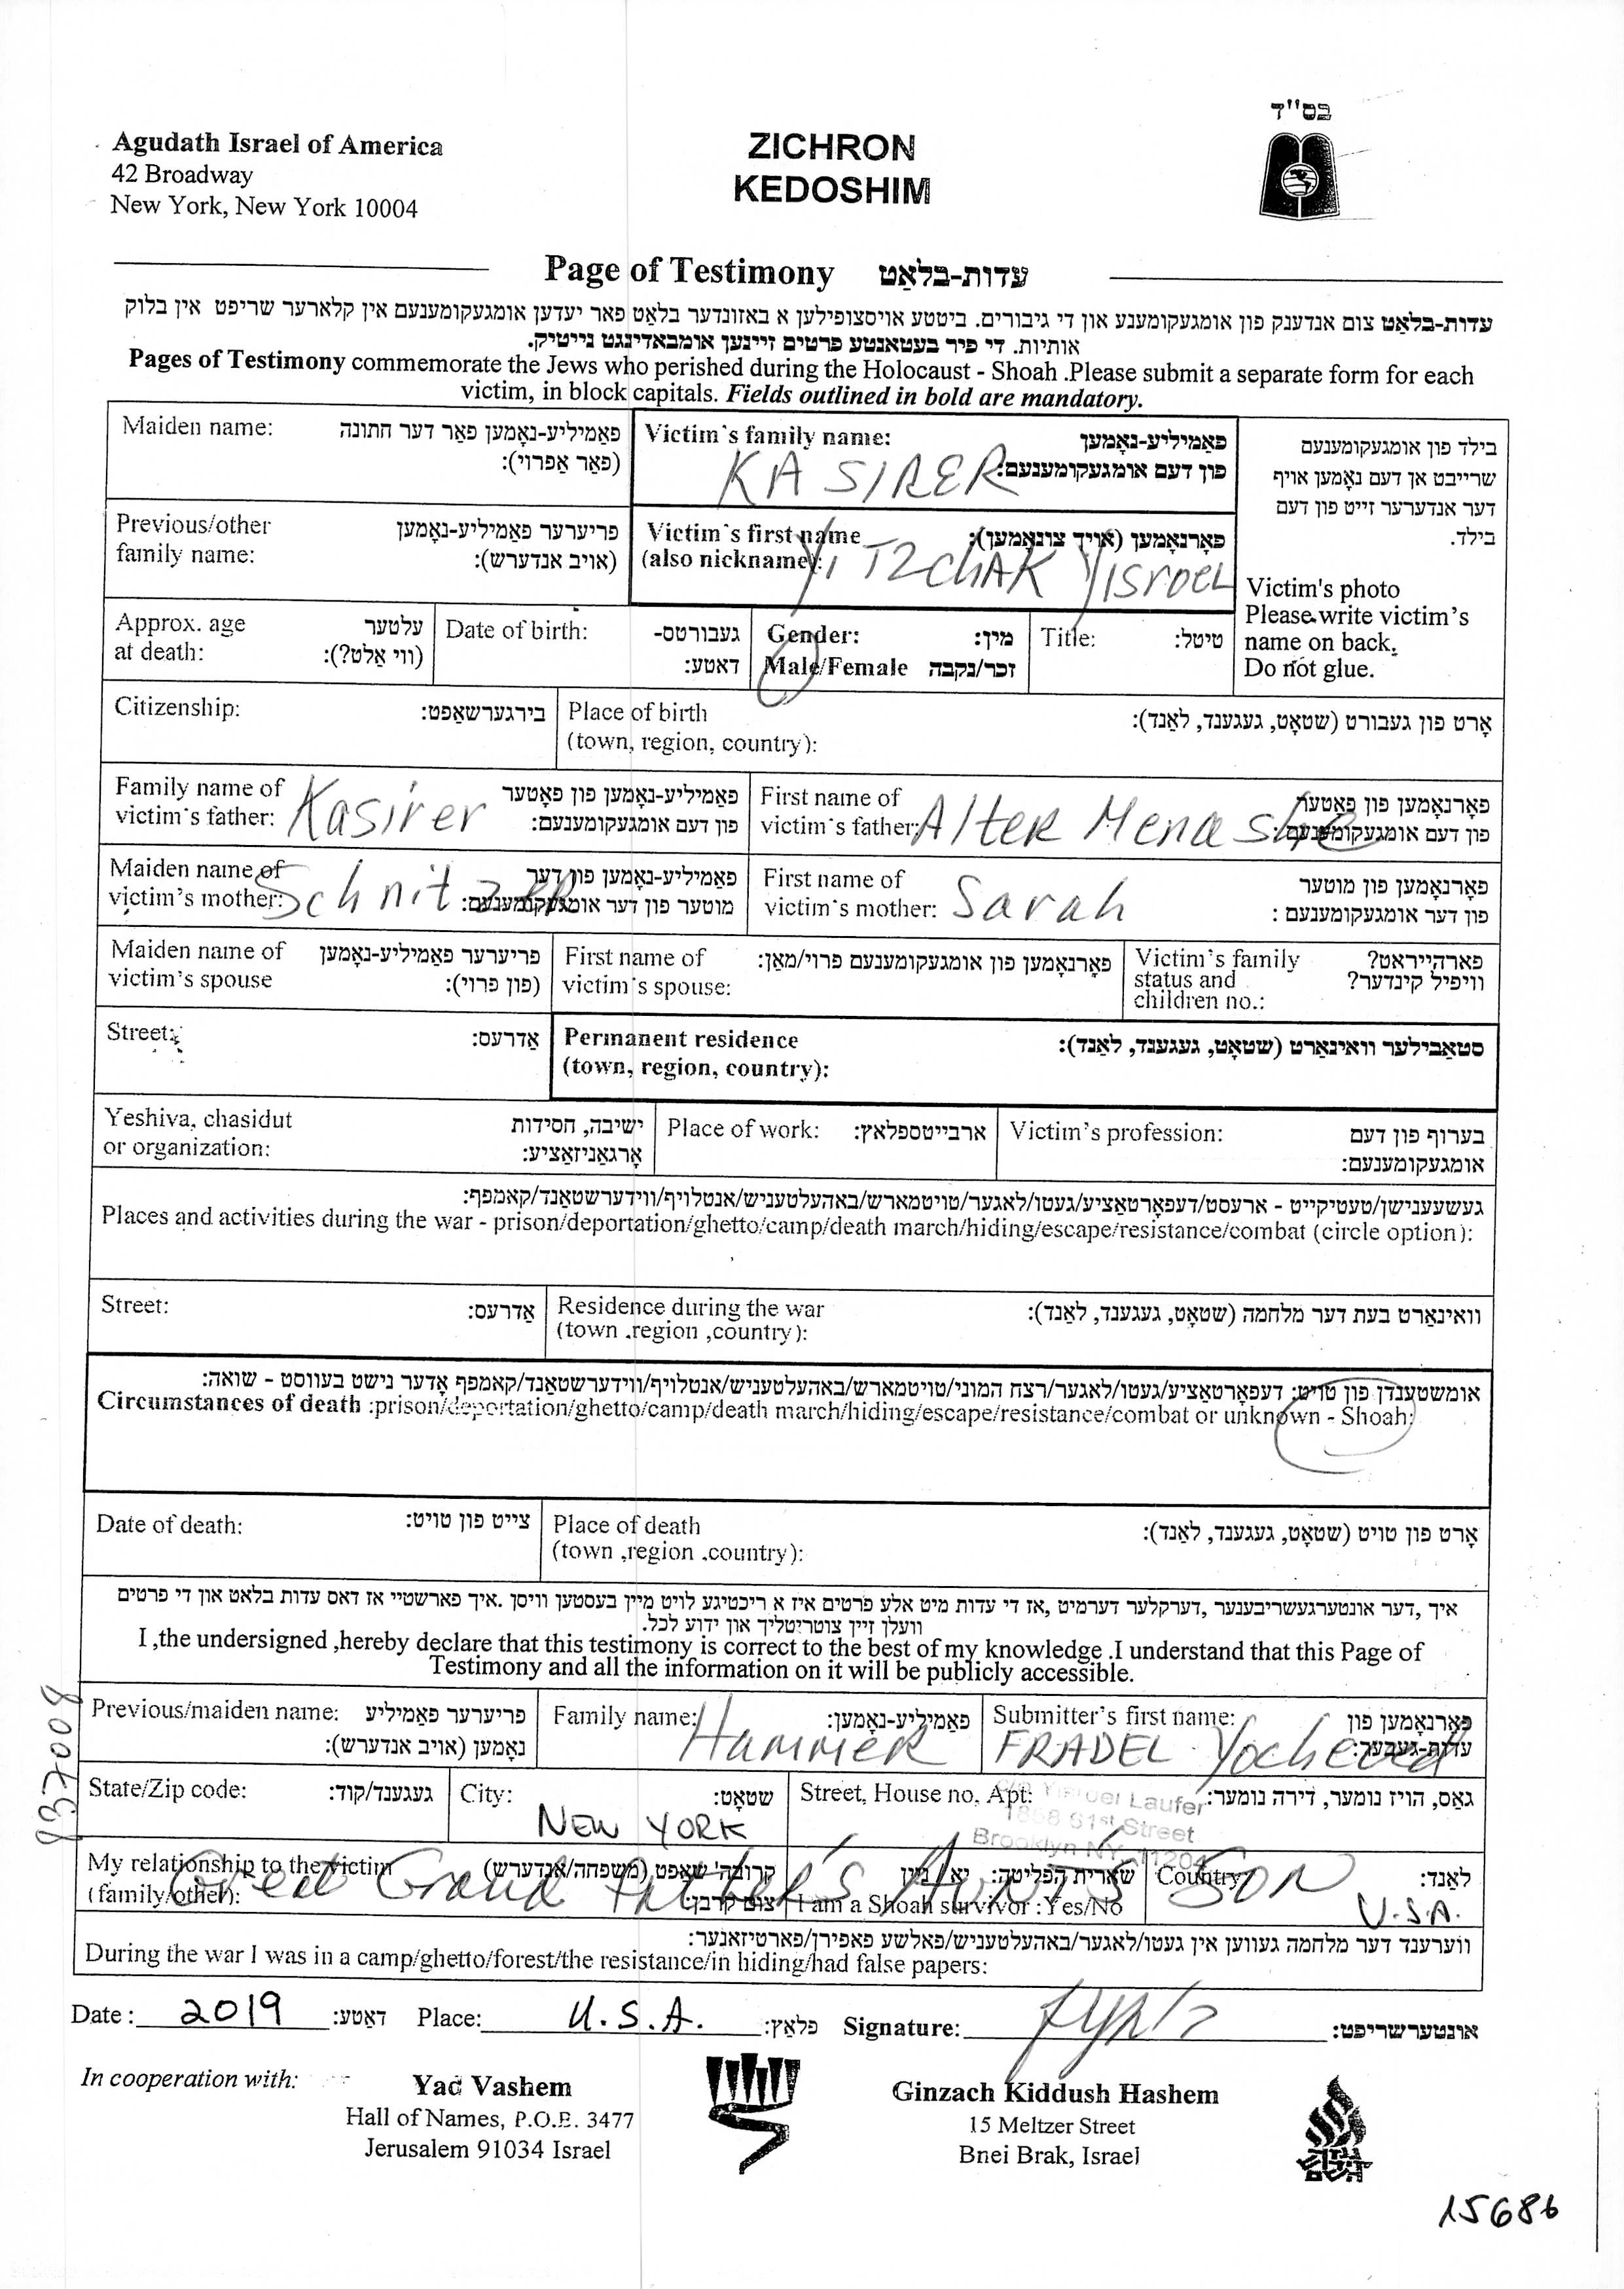 בס"ד
Agudath Israel of America
42 Broadway
New York, New York 10004
ZICHRON
KEDOSHIM
Page of Testimony עדות-בלאַט
עדות-בלאַט צום אנדענק פון אומגעקומענע און די גיבורים. ביטע אויסצופילען א באזונדער בלאַט פאר יעדען אומגעקומענעם אין קלארער שריפט אין בלוק
אותיות. די פיר בעטאנטע פרטים זיינען אומבאדינגט נייטיק.
Pages of Testimony commemorate the Jews who perished during the Holocaust - Shoah .Please submit a separate form for each
victim, in block capitals. Fields outlined in bold are mandatory.
Maiden name: פאַמיליע-נאָמען פאר דער חתונה
(פאַר אַפרוי):
Victim's family name: פאַמיליע-נאָמען
פון דעם אומגעקומענעם:
KASIRER
בילד פון אומגעקומענעם
שרייבט אן דעם נאָמען אויף
דער אנדערער זייט פון דעם
בילד.
Victim's photo
Please write victim's
name on back.
Do not glue.
Previous/other פריערער פאַמיליע-נאָמען
family name: (אויב אנדערש):
Victim's first name פאָרנאָמען (אויך צונאָמען):
(also nickname): YITZCHAK YISROEL
Approx. age עלטער
at death: (ווי אַלט?):
Date of birth: געבורטס-
דאטע:
Gender: מין:
Male/Female זכר/נקבה
Title: טיטל:
Citizenship: בירגערשאַפט:
Place of birth ארט פון געבורט (שטאָט, געגענד, לאַנד):
(town, region, country):
Family name of פאַמיליע-נאָמען פון פאָטער
victim's father: Kasirer פון דעם אומגעקומענעם:
First name of פאָרנאָמען פון פאָטער
victim's father: Alter Menashe פון דעם אומגעקומענעם:
Maiden name of פאַמיליע-נאָמען פון דער
victim's mother: Schnitzer מוטער פון דער אומגעקומענעם:
First name of פאָרנאָמען פון מוטער
victim's mother: Sarah פון דער אומגעקומענעם :
Maiden name of פריערער פאַמיליע-נאָמען
victim's spouse (פון פרוי):
First name of פאָרנאָמען פון אומגעקומענעם פרוי/מאַן:
victim's spouse:
Victim's family פארהייראט?
status and וויפיל קינדער?
children no.:
Street: אַדרעס:
Permanent residence סטאַבילער וואינאַרט (שטאָט, געגענד, לאַנד):
(town, region, country):
Yeshiva, chasidut ישיבה, חסידות
or organization: אָרגאַניזאַציע:
Place of work: ארבייטספלאץ:
Victim's profession: בערוף פון דעם
אומגעקומענעם:
געשעענישן/טעטיקייט - ארעסט/דעפאָרטאַציע/געטו/לאגער/טויטמארש/באהעלטעניש/אנטלויף/ווידערשטאַנד/קאמפף:
Places and activities during the war - prison/deportation/ghetto/camp/death march/hiding/escape/resistance/combat (circle option):
Street: אַדרעס:
Residence during the war וואינאַרט בעת דער מלחמה (שטאָט, געגענד, לאַנד):
(town .region ,country):
אומשטענדן פון טויט: דעפאָרטאַציע/געטו/לאגער/רצח המוני/טויטמארש/באהעלטעניש/אנטלויף/ווידערשטאַנד/קאמפף אָדער נישט בעוווסט - שואה:
Circumstances of death :prison/deportation/ghetto/camp/death march/hiding/escape/resistance/combat or unknown - Shoah:
Date of death: צייט פון טויט:
Place of death אָרט פון טויט (שטאָט, געגענד, לאַנד):
(town ,region .country):
איך ,דער אונטערגעשריבענער ,דערקלער דערמיט ,אז די עדות מיט אלע פרטים איז א ריכטיגע לויט מיין בעסטען וויסן .איך פארשטיי אז דאס עדות בלאט און די פרטים
וועלן זיין צוטריטליך און ידוע לכל.
I ,the undersigned ,hereby declare that this testimony is correct to the best of my knowledge .I understand that this Page of
Testimony and all the information on it will be publicly accessible.
Previous/maiden name: פריערער פאַמיליע
נאָמען (אויב אנדערש):
Family name: פאַמיליע-נאָמען:
Hammer
Submitter's first name: פאָרנאָמען פון
עדות-געבער:
FRADEL Yocheved
State/Zip code: געגענד/קוד:
City: שטאָט:
NEW YORK
Street, House no, Apt: גאַס, הויז נומער, דירה נומער:
c/o Yisroel Laufer
1868 61st Street
Brooklyn NY 11204
My relationship to the victim קרובה'שאַפט (משפחה/אנדערש)
(family/other): צום קרבן:
Great Grand Father's Aunt's Son
שארית הפליטה: יא / ניין
I am a Shoah survivor : Yes/No
Country לאַנד:
U.S.A.
ווערענד דער מלחמה געווען אין געטו/לאגער/באהעלטעניש/פאלשע פאפירן/פארטיזאנער:
During the war I was in a camp/ghetto/forest/the resistance/in hiding/had false papers:
Date : 2019 דאַטע: Place: U.S.A. פלאַץ: Signature: אונטערשריפט:
In cooperation with:
Yad Vashem
Hall of Names, P.O.E. 3477
Jerusalem 91034 Israel
Ginzach Kiddush Hashem
15 Meltzer Street
Bnei Brak, Israel
גנזך
קידוש
השם
837008
15686